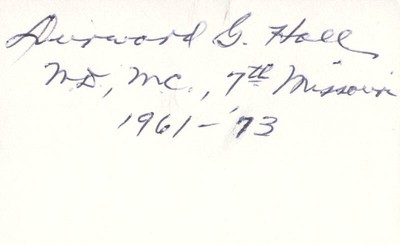 Durward G. Hall
MD, MC., 7th Missouri
1961-'73